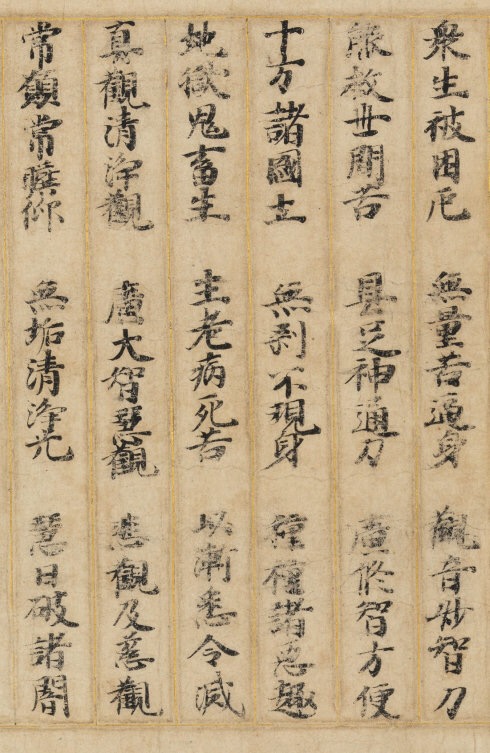 衆生被困厄　無量苦逼身　觀音妙智力
能救世間苦　具足神通力　廣修智方便
十方諸國土　無刹不現身　種種諸惡趣
地獄鬼畜生　生老病死苦　以漸悉令滅
真觀清淨觀　廣大智慧觀　悲觀及慈觀
常願常瞻仰　無垢清淨光　慧日破諸闇